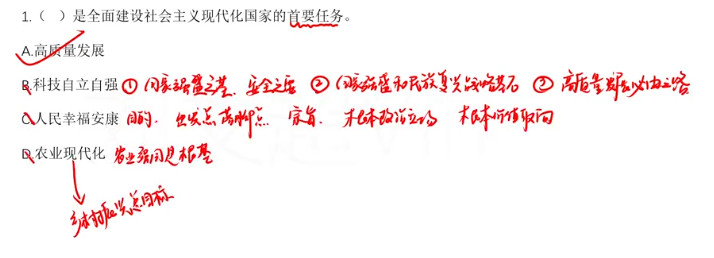 1.（ ）是全面建设社会主义现代化国家的首要任务。
A.高质量发展
B.科技自立自强 ① 国家强盛之基、安全之要 ② 国家强盛和民族复兴战略基石 ③ 高质量发展必由之路
C.人民幸福安康 目的、出发点落脚点、宗旨、根本政治立场 根本价值取向
D.农业现代化 农业强国是根基
乡村振兴总目标